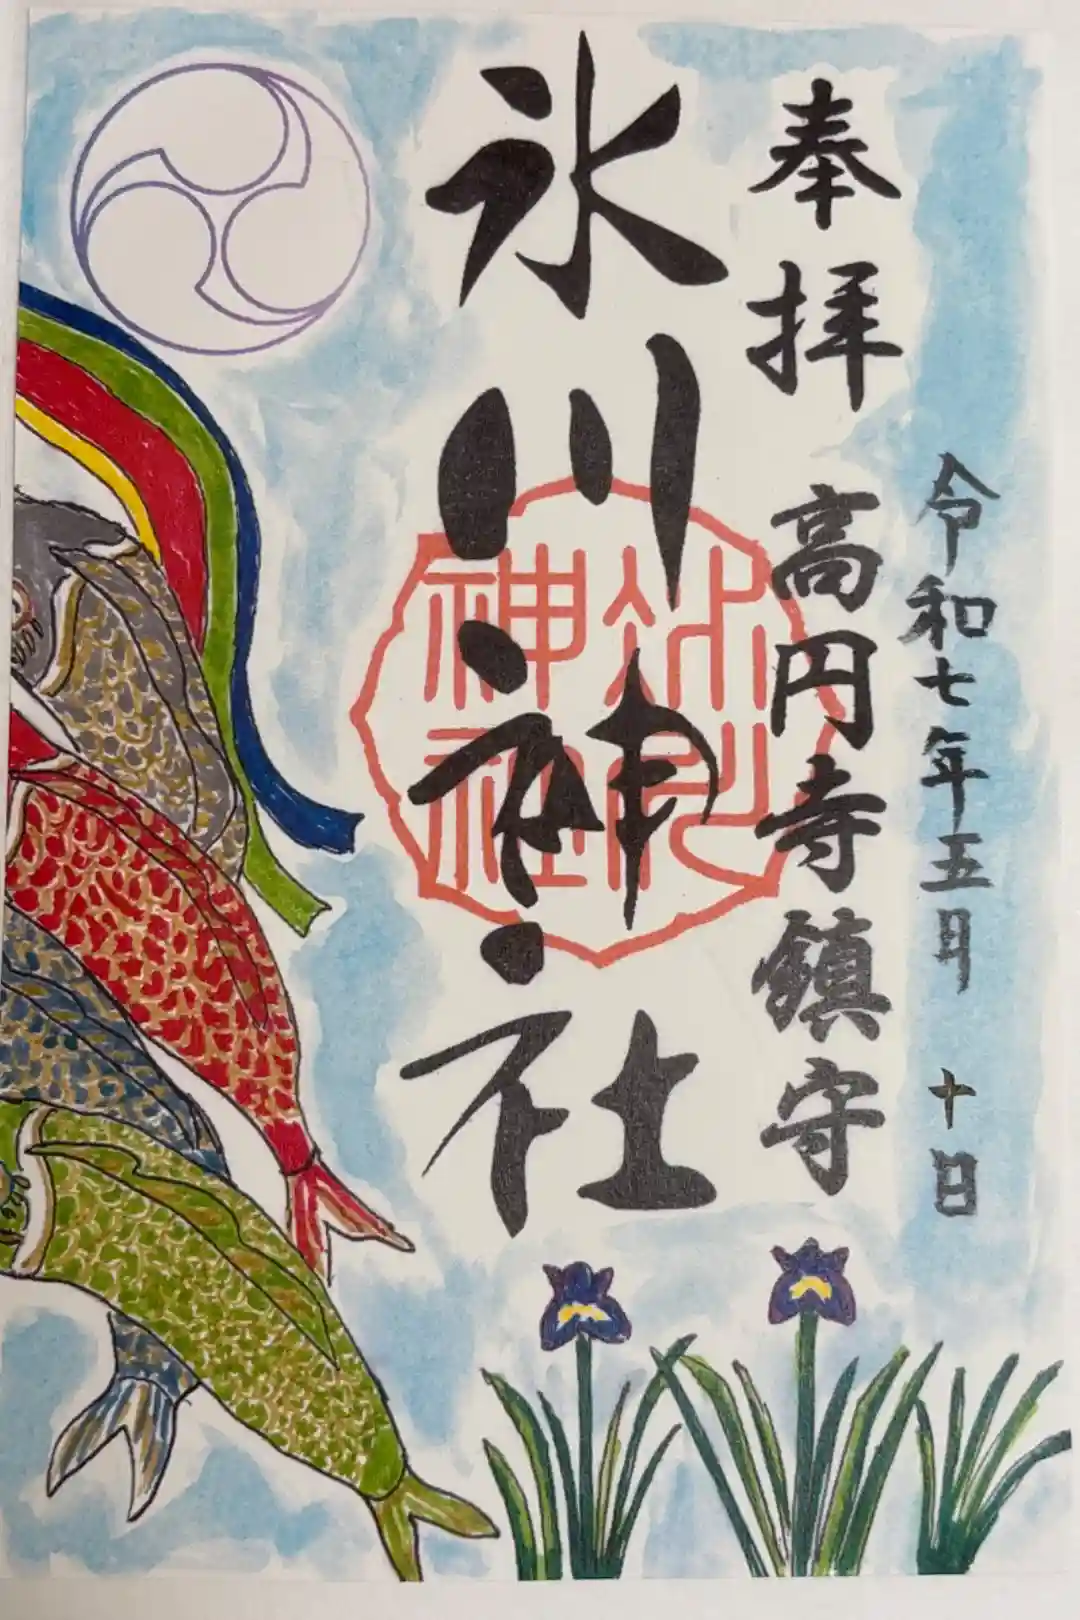 令和七年五月 十日
奉拝 高円寺鎮守
氷川神社
氷川
神社